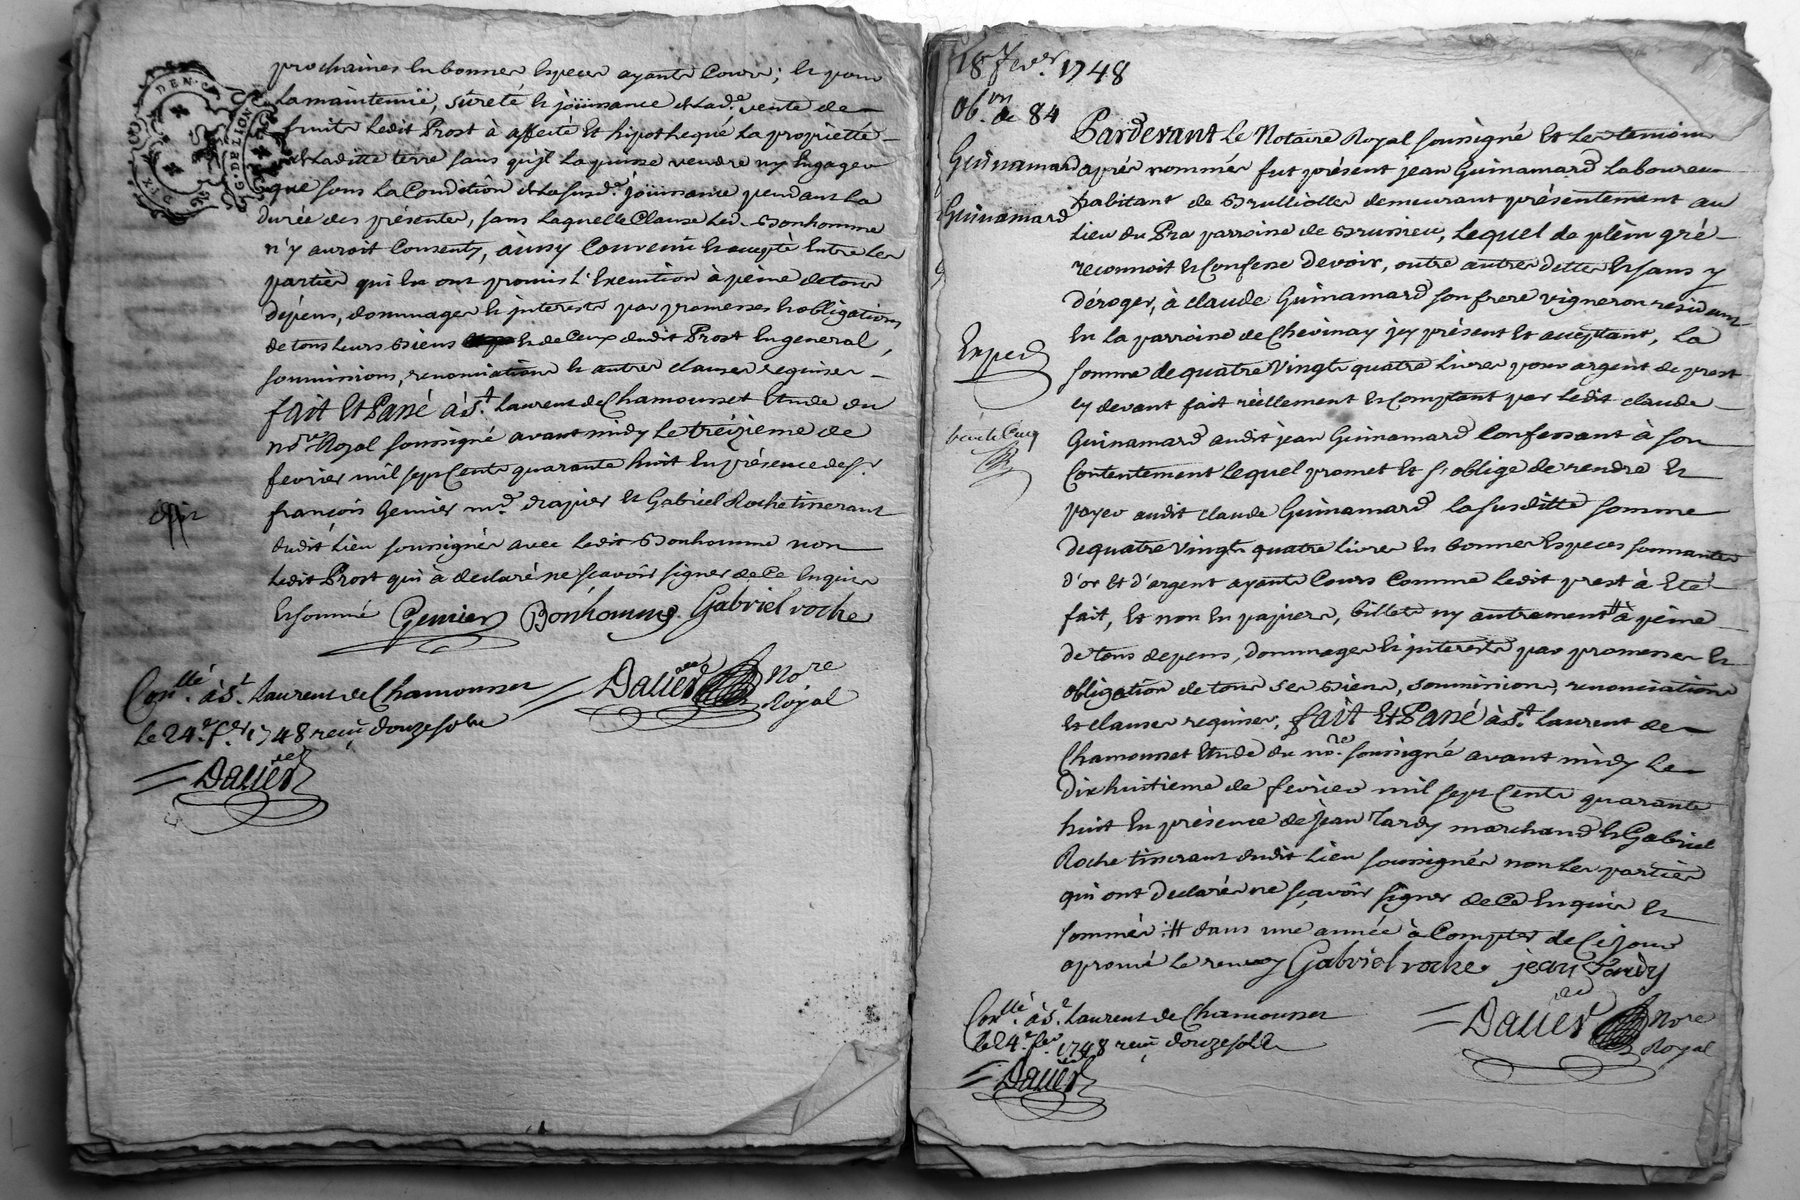 DIX DEN. G. DE LION
prochaines en bonnes especes ayants cours; et pour
la maintenuë, sûreté et joüissance de lad.e vente de
fruits ledit Prost à affecté et hipothequé la propriette
de laditte terre sans qu'jl la puisse vendre ny Engager
que sous la Condition de la susd.e joüissance pendant la
durée des presentes, sans laquelle Clause led. Bonhomme
n'y auroit Consenty, ainsy Convenu et accepté Entre les
parties qui En ont promis l'Execution à peine de tous
dépens, dommages et jnterests par promesses et obligations
de tous leurs biens et de Ceux dudit Prost En general,
soumissions, renonciations et autres clauses requises
fait Et Passé à S.t Laurent de Chamousset Etude du
no.re Royal soussigné avant midy le treizieme de
fevrier mil sept Cents quarante huit En présence de s.r
françois Gemier m.d drapier Et Gabriel Roche tisserant
dudit lieu soussignés avec ledit Bonhomme non
ledit Prost qui à declaré ne sçavoir signer de Ce Enquis
Et sommé Gemier Bonhomme. Gabriel roche
Con.llé à S.t Laurent de Chamousset
le 24.e f.er 1748 reçu douze sols
Dauier
Dauier No.re Royal
18 fev.er 1748
Ob.on de 84
Guinamard
Guinamard
Exped
Pardevant le Notaire Royal soussigné Et les temoins
aprés nommés fut présent jean Guinamard laboureur
habitant de Brulliolles demeurant présentement au
lieu du Pra parroisse de Brussieu, lequel de plein gré
reconnoit et Confesse devoir, outre autres dettes Et sans y
déroger, à claude Guinamard son frere vigneron residant
En la parroisse de Chevinay jcy présent Et acceptant, la
somme de quatre Vingts quatre livres pour argent de prest
cy devant fait réellement et Comptant par ledit claude
Guinamard audit jean Guinamard Confessant à son
Contentement lequel promet Et s'oblige de rendre Et
payer audit claude Guinamard la susditte somme
de quatre Vingts quatre livres En bonnes Especes sonnantes
d'or Et d'argent ayants Cours Comme ledit prest à Eté
fait, Et non En papiers, billets ny autrement # à peine
de tous depens, dommages et jnterests par promesses et
obligation de tous ses biens, soumissions, renonciations
Et clauses requises, fait Et Passé à S.t Laurent de
Chamousset Etude du no.re soussigné avant midy le
dix huitieme de fevrier mil sept Cents quarante
huit En présence de jean Tardy marchand et Gabriel
Roche tisserant dudit lieu soussignés non les parties
qui ont declarés ne sçavoir signer de Ce Enquis Et
sommés :# dans une année à Compter de Ce jour
aprouvé le renvoy Gabriel roche. jean Tardy
Con.llé à S.t Laurent de Chamousset
le 24.e fer. 1748 reçu douze sols
Dauier
Dauier No.re Royal